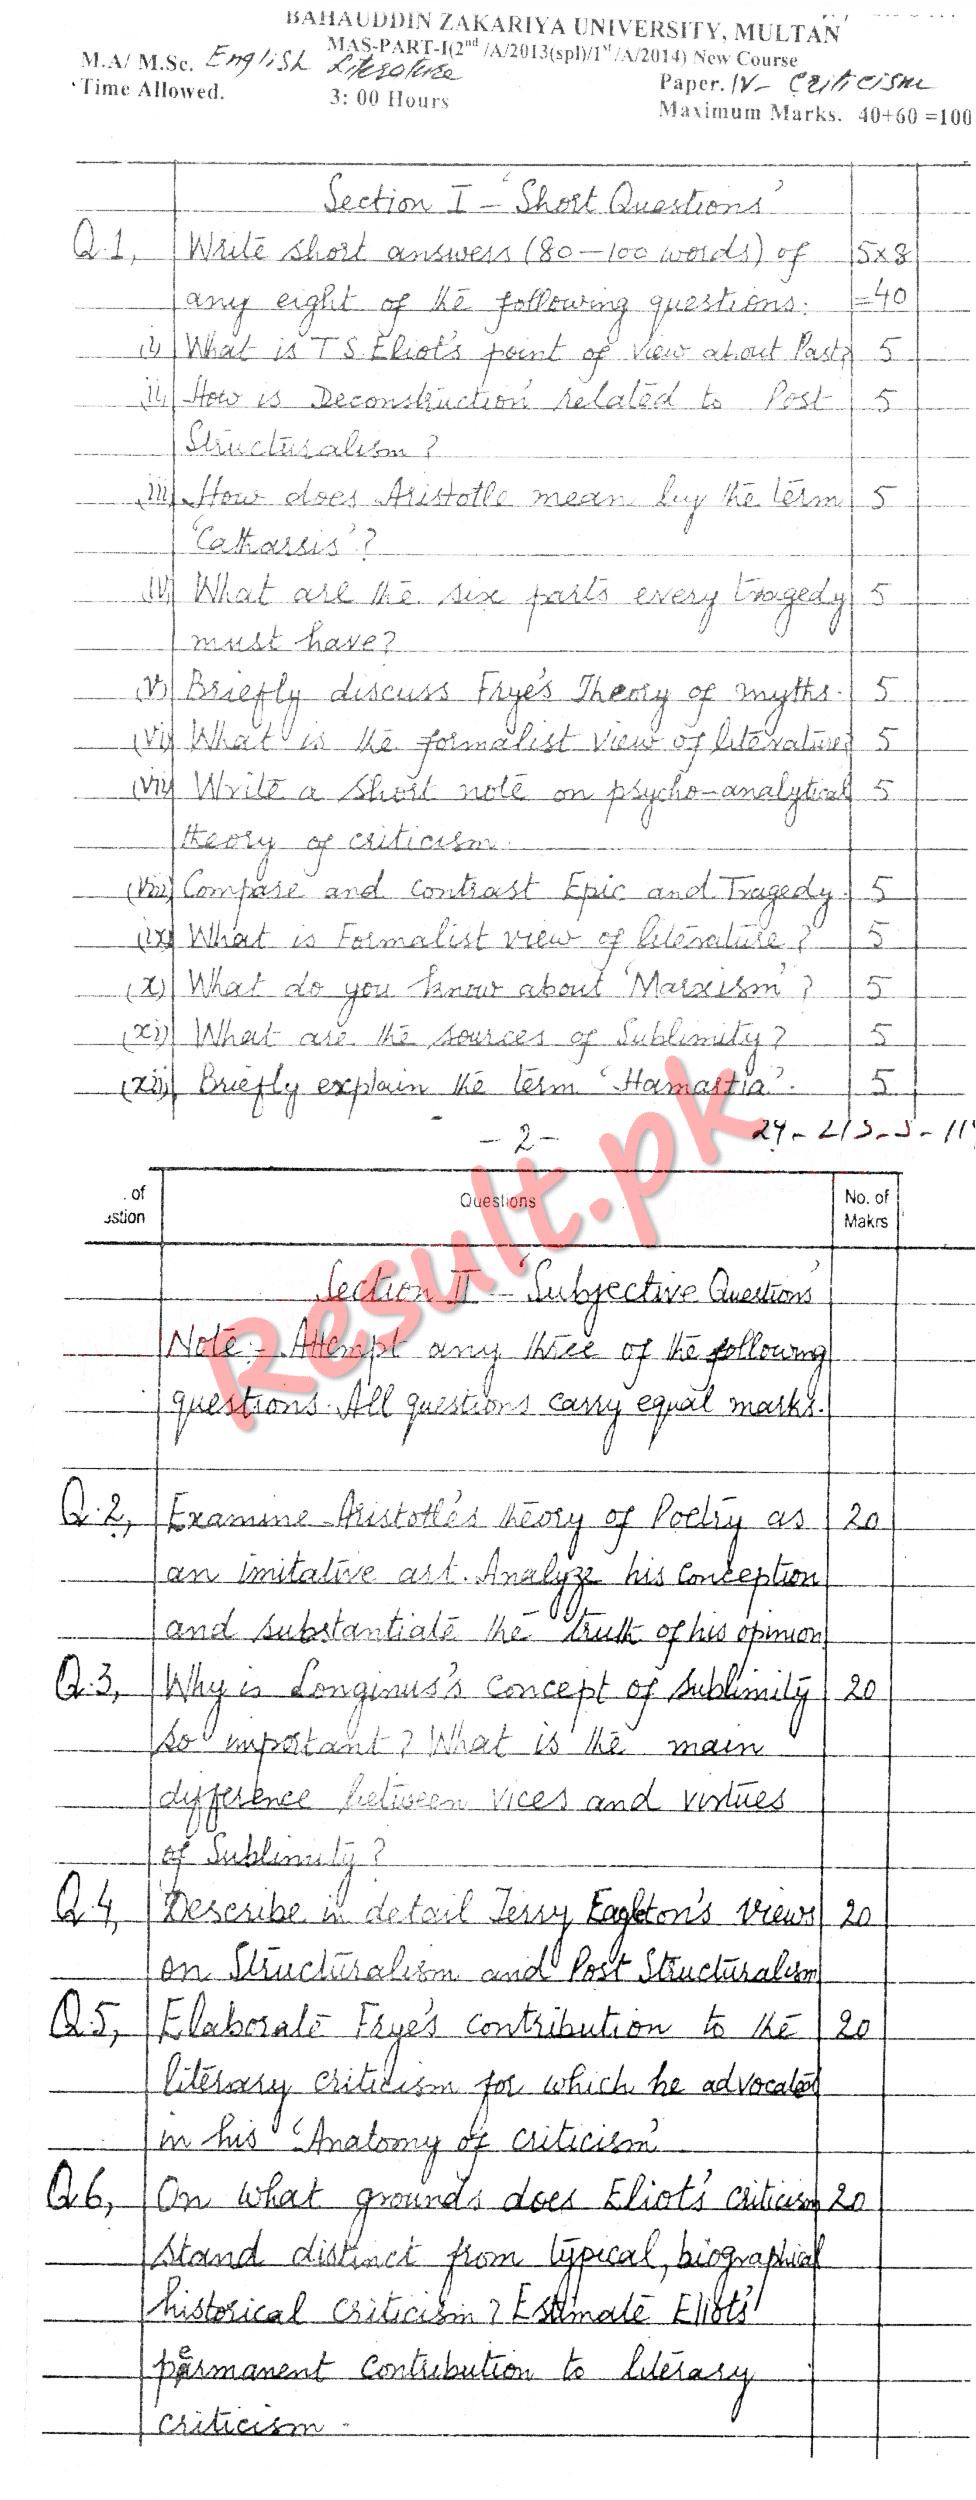 BAHAUDDIN ZAKARIYA UNIVERSITY, MULTAN
MAS-PART-I(2nd /A/2013(spl)/1st /A/2014) New Course
M.A/ M.Sc. English Literature
Paper. IV- Criticism
Time Allowed. 3: 00 Hours
Maximum Marks. 40+60 =100
Section I - 'Short Questions'
Q.1, Write short answers (80-100 words) of 5x8
any eight of the following questions. =40
i) What is T S Eliot's point of view about Past? 5
ii) How is Deconstruction related to Post 5
Structuralism?
iii) How does Aristotle mean by the term 5
'Catharsis'?
iv) What are the six parts every tragedy 5
must have?
(v) Briefly discuss Frye's Theory of myths. 5
(vi) What is the formalist view of literature? 5
(vii) Write a short note on psycho-analytical 5
theory of criticism.
(viii) Compare and contrast Epic and Tragedy. 5
(ix) What is Formalist view of literature? 5
(x) What do you know about 'Marxism'? 5
(xi) What are the sources of Sublimity? 5
(xii) Briefly explain the term 'Hamartia'. 5
- 2 -
Result.pk
of
stion Questions No. of
Makrs
Section II - 'Subjective Questions'
Note:- Attempt any three of the following
questions. All questions carry equal marks.
Q.2, Examine Aristotle's theory of Poetry as 20
an imitative art. Analyze his conception
and substantiate the truth of his opinion
Q.3, Why is Longinus's concept of sublimity 20
so important? What is the main
difference between vices and virtues
of Sublimity?
Q.4, Describe in detail Terry Eagleton's views 20
on Structuralism and Post Structuralism
Q.5, Elaborate Frye's contribution to the 20
literary criticism for which he advocated
in his 'Anatomy of criticism'
Q.6, On what grounds does Eliot's criticism 20
stand distinct from typical, biographical
historical criticism? Estimate Eliot's
permanent contribution to literary
criticism.